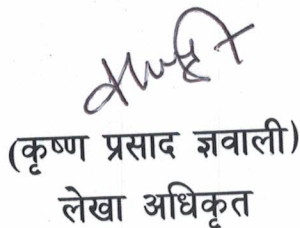 (कृष्ण प्रसाद ज्ञवाली)
लेखा अधिकृत